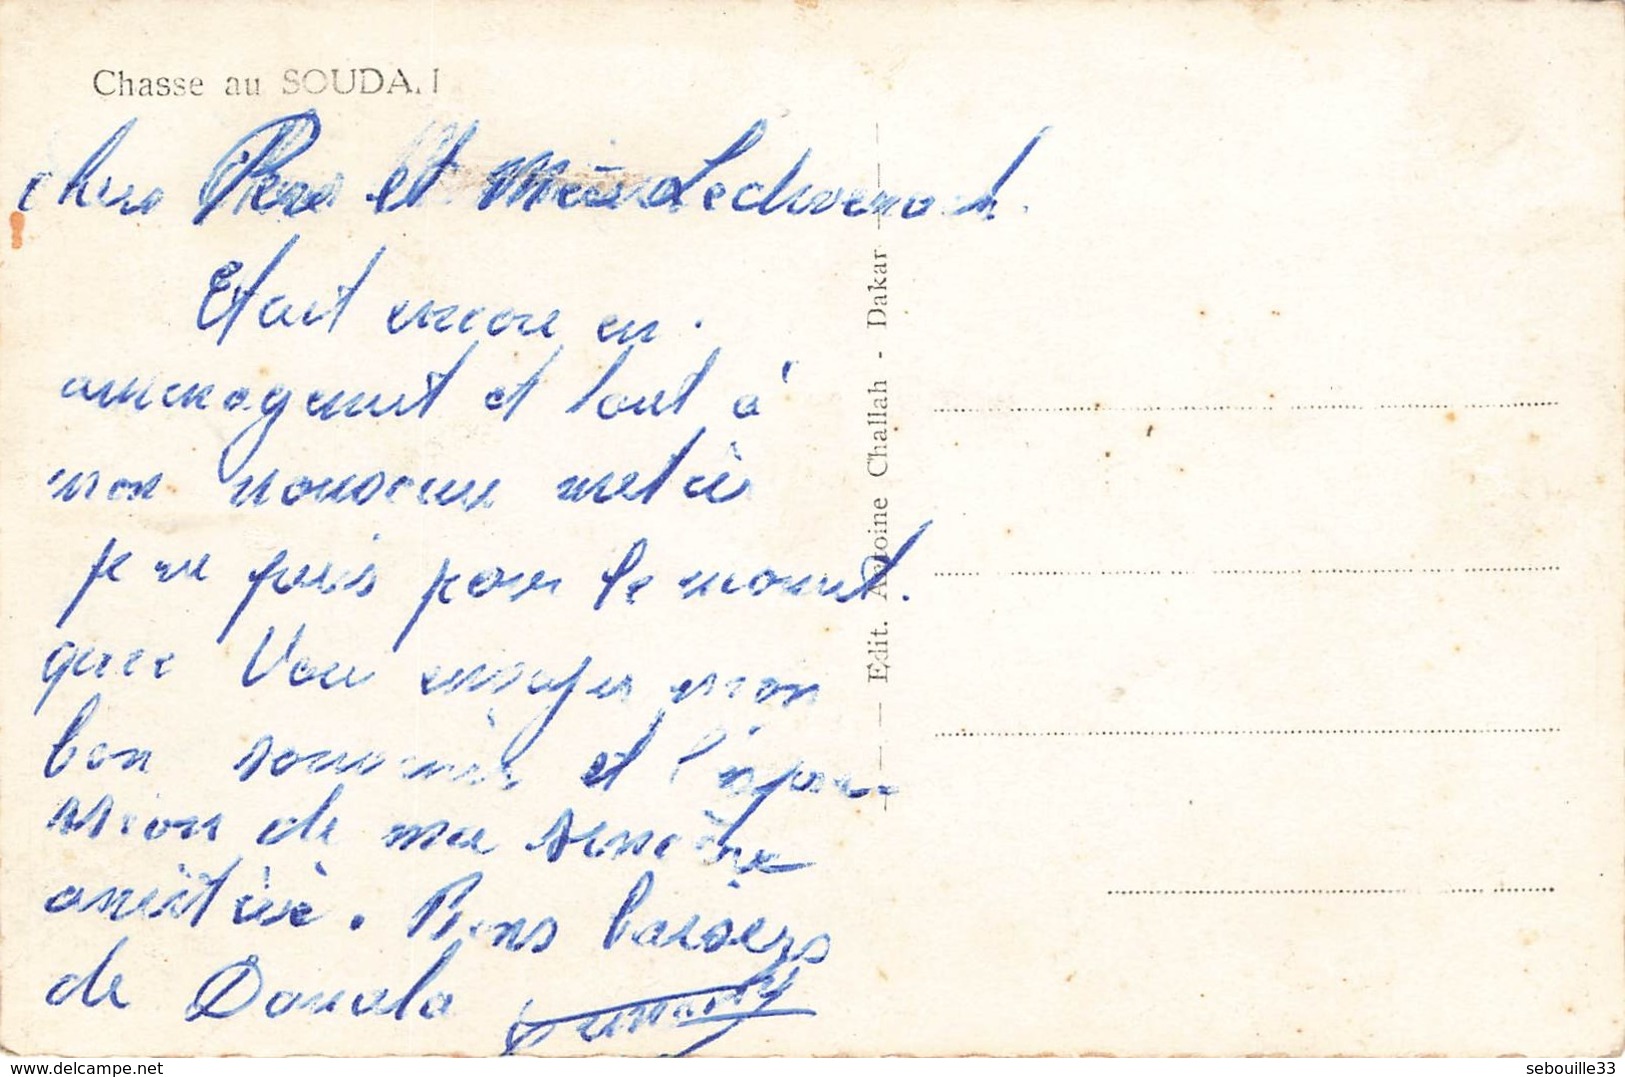 Chasse au SOUDAN
Chers Père et Mère Lechvenach.
Etant encore en
aménagement et tout à
mon nouveau metier
je ne puis pour le moment.
que Vous envoyer mon
bon souvenir et l'expres-
sion de ma sincère
amitié. Bons baisers
de Douala
Edit. Antoine Challah - Dakar
delcampe.net
sebouille33